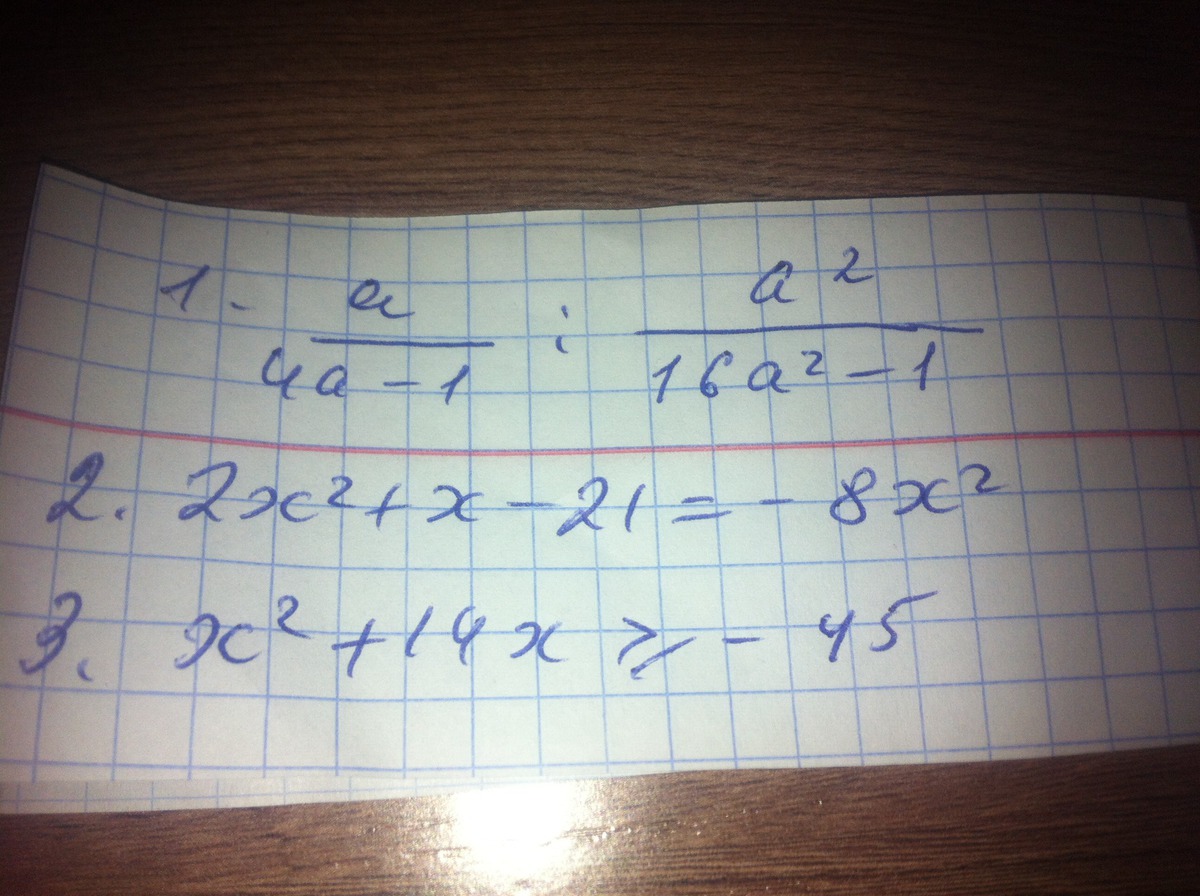 1. a/(4a-1) : a²/(16a²-1)
2. 2x²+x-21=-8x²
3. x²+14x⩾-45